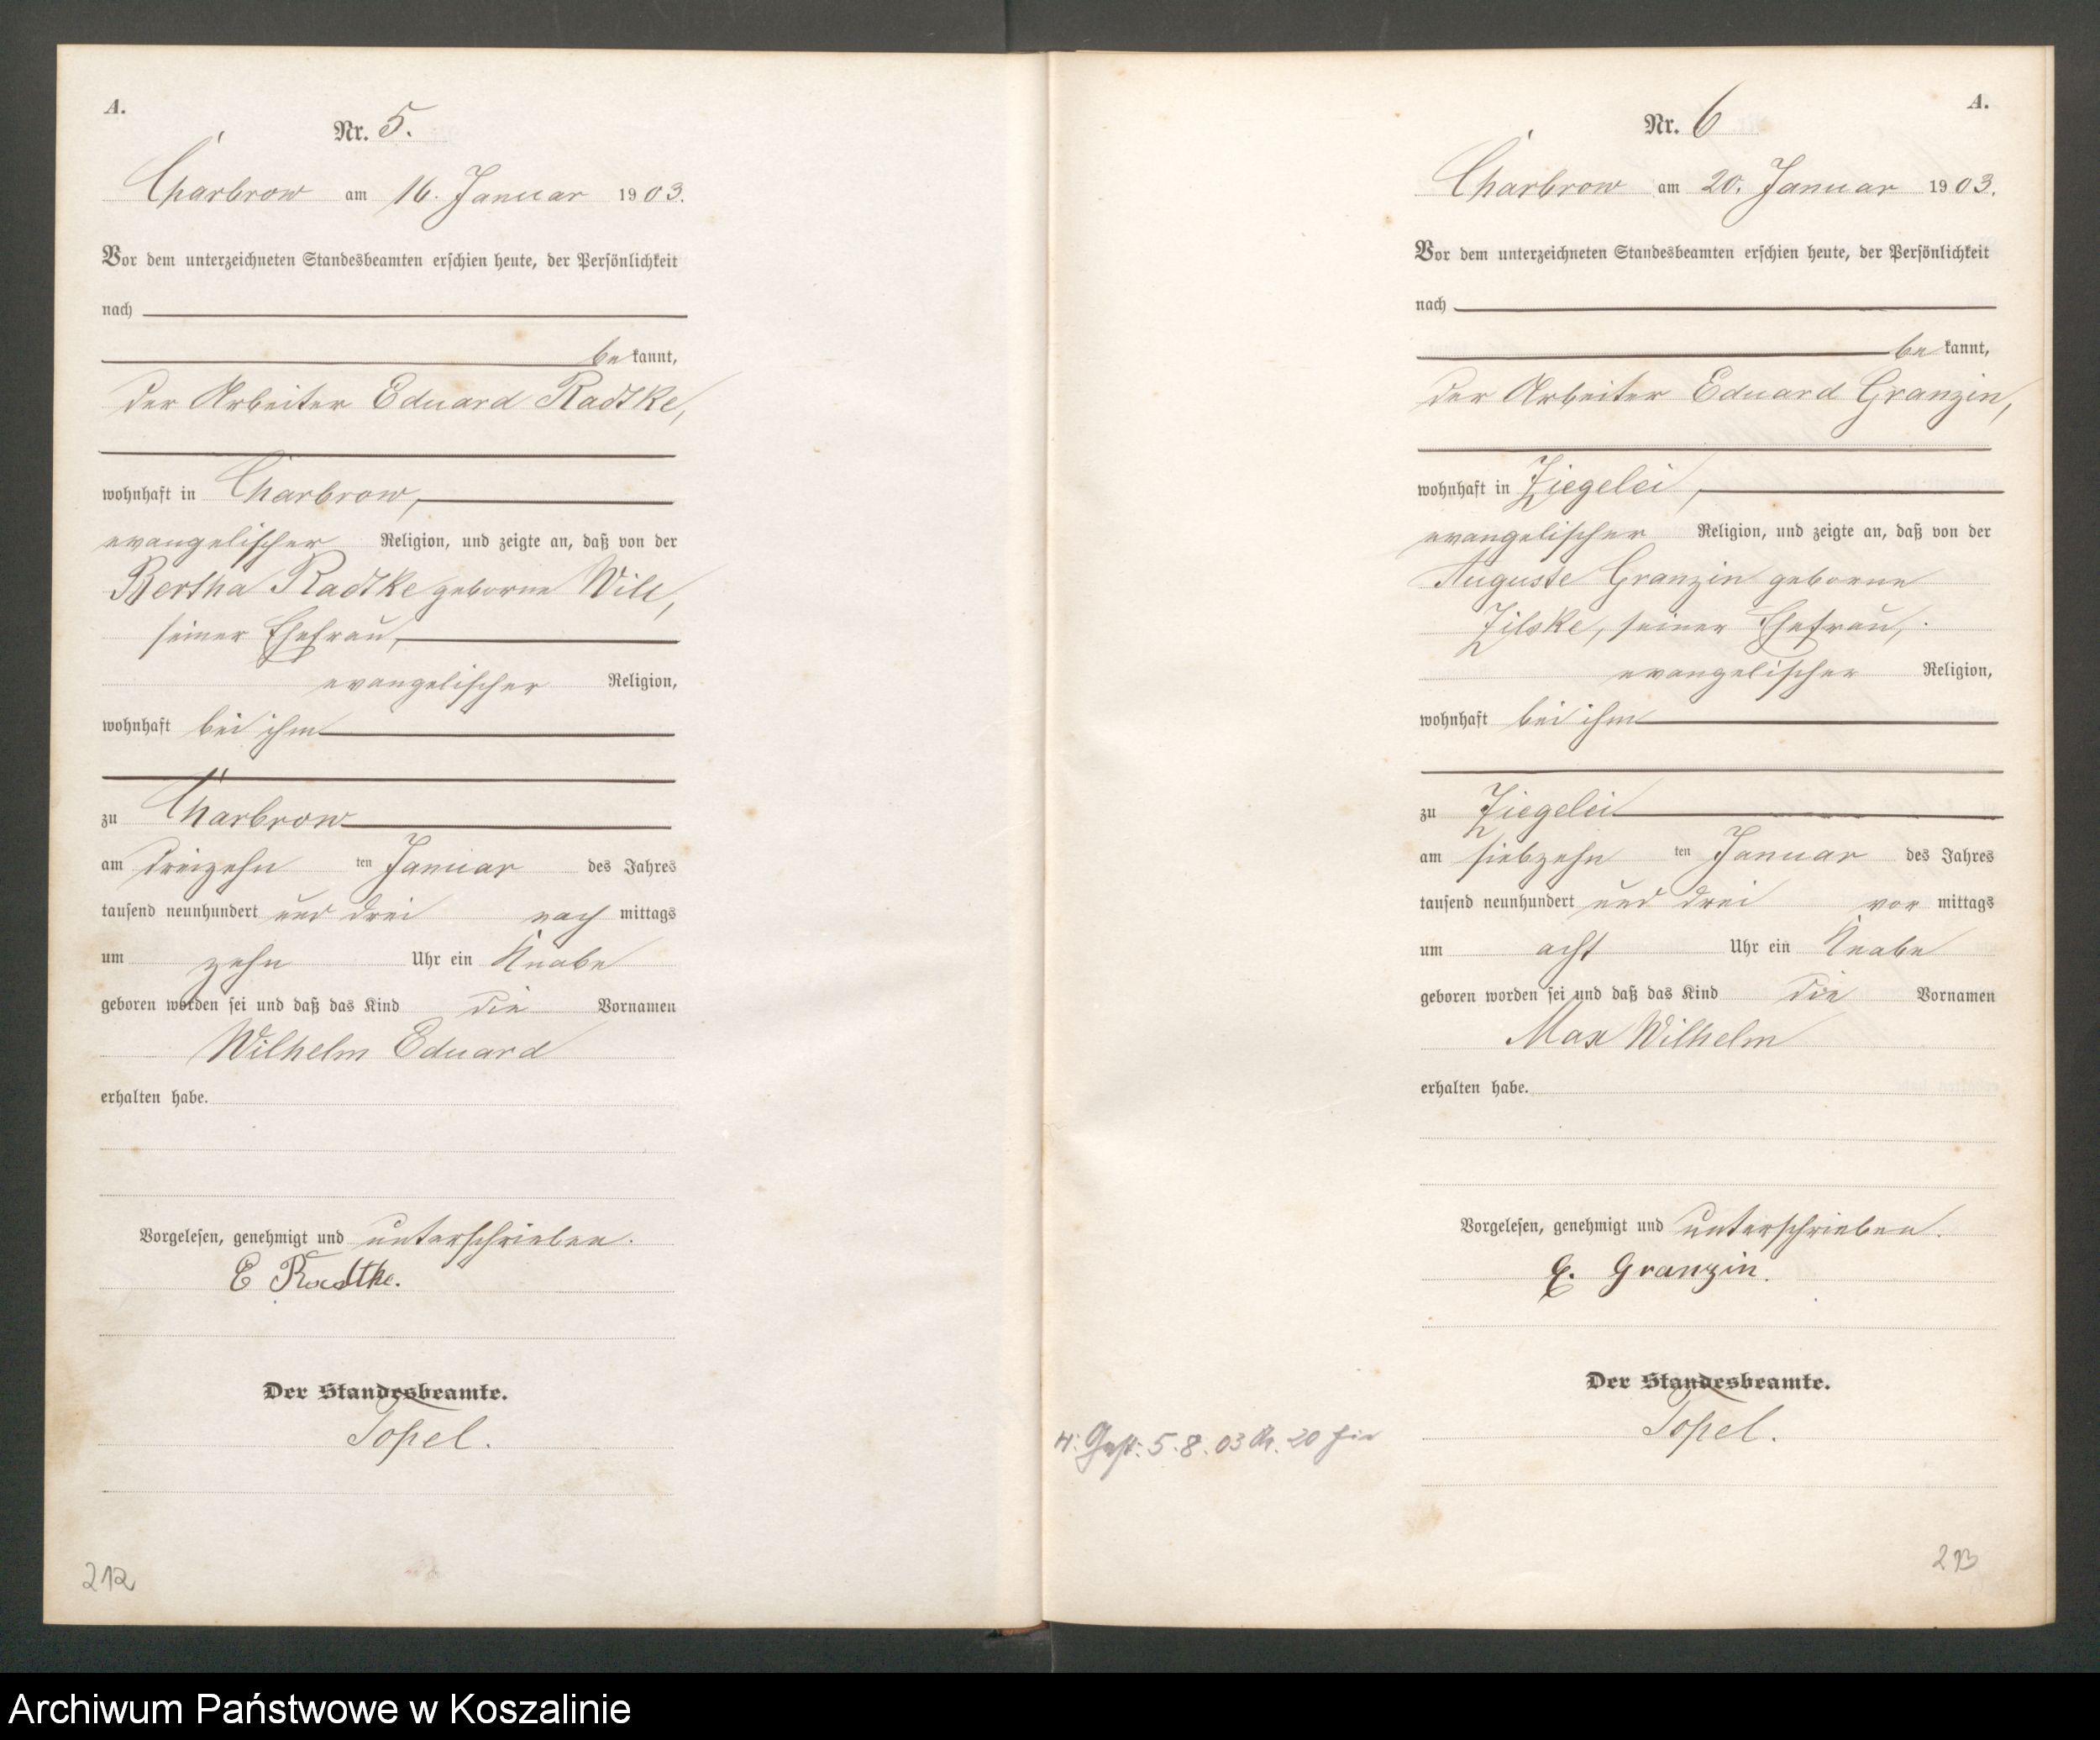 A.
Nr. 5.
Charbrow am 16. Januar 1903.
Vor dem unterzeichneten Standesbeamten erschien heute, der Persönlichkeit
nach
bekannt,
der Arbeiter Eduard Radtke,
wohnhaft in Charbrow,
evangelischer Religion, und zeigte an, daß von der
Bertha Radtke geborne Will,
seiner Ehefrau,
evangelischer Religion,
wohnhaft bei ihm
zu Charbrow
am dreizehn ten Januar des Jahres
tausend neunhundert und drei nach mittags
um zehn Uhr ein Knabe
geboren worden sei und daß das Kind die Vornamen
Wilhelm Eduard
erhalten habe.
Vorgelesen, genehmigt und unterschrieben.
E Radtke.
Der Standesbeamte.
Topel.
212
A.
Nr. 6
Charbrow am 20. Januar 1903.
Vor dem unterzeichneten Standesbeamten erschien heute, der Persönlichkeit
nach
bekannt,
der Arbeiter Eduard Granzin,
wohnhaft in Ziegelei,
evangelischer Religion, und zeigte an, daß von der
Auguste Granzin geborne
Zilske, seiner Ehefrau,
evangelischer Religion,
wohnhaft bei ihm
zu Ziegelei
am siebzehn ten Januar des Jahres
tausend neunhundert und drei vor mittags
um acht Uhr ein Knabe
geboren worden sei und daß das Kind die Vornamen
Max Wilhelm
erhalten habe.
Vorgelesen, genehmigt und unterschrieben.
E. Granzin.
Der Standesbeamte.
Topel.
5.8.03 20
213
Archiwum Państwowe w Koszalinie